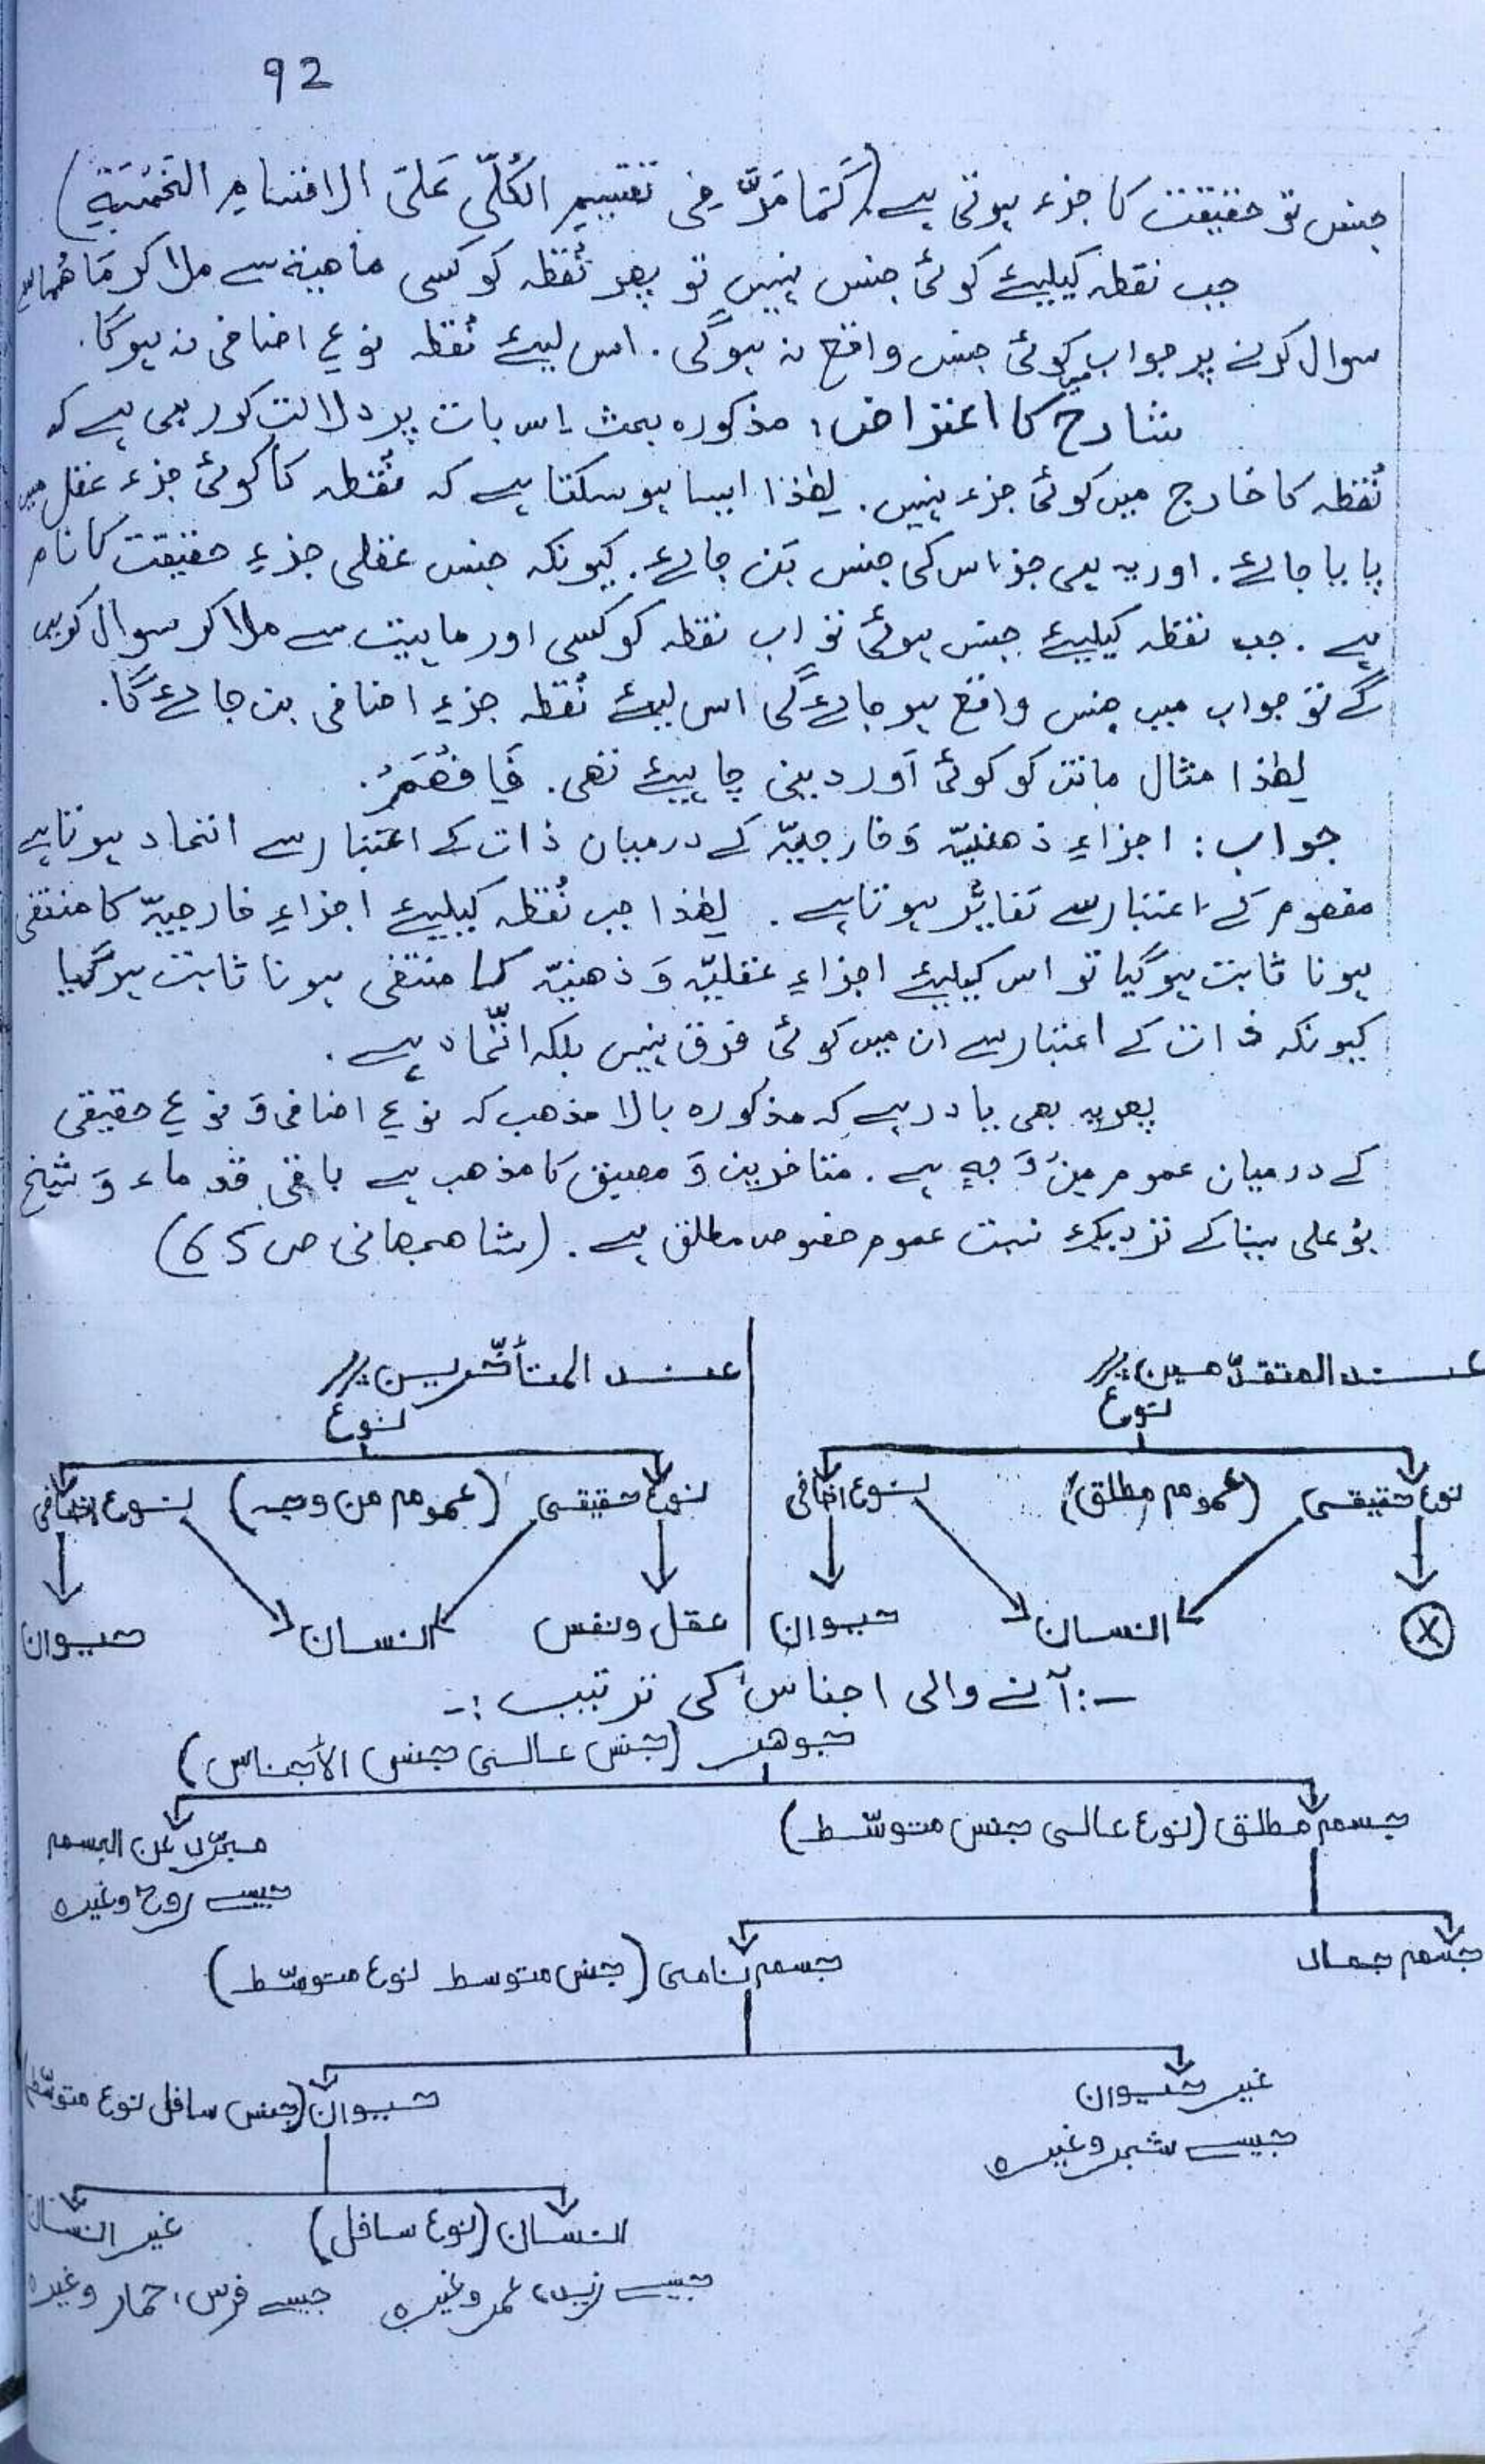 92
جنس تو حقیقت کا جزء ہوتی ہے (کَمَا مَرَّ فِی تقسیمِ الکُلِّی عَلیَ الاقسامِ الخَمْسَةِ)
جب نقطہ کیلیئے کوئی جنس نہیں تو پھر نُقطہ کو کسی ماھیة سے ملا کر مَا هُمَا سے
سوال کرنے پر جواب میں کوئی جنس واقع نہ ہوگی۔ اس لیئے نُقطہ نوعِ اضافی نہ ہوگا۔
شارح کا اعتراض: مذکورہ بحث اس بات پر دلالت کررہی ہے کہ
نُقطہ کا خارج میں کوئی جزء نہیں۔ لھٰذا ایسا ہو سکتا ہے کہ نُقطہ کا کوئی جزء عقل میں
پایا جائے۔ اور یہ ہی جزء اس کی جنس بَن جائے۔ کیونکہ جنس عقلی جزءِ حقیقت کا نام
ہے۔ جب نقطہ کیلیئے جنس ہوئی تو اب نقطہ کو کسی اور ماہیت سے ملا کر سوال کریں
گے تو جواب میں جنس واقع ہو جائے گی اس لیئے نُقطہ جزءِ اضافی بن جائے گا۔
لھٰذا مثال ماتن کو کوئی اَور دینی چاہیئے تھی۔ فَافْھَمْ۔
جواب: اجزاءِ ذھنیّہ وَ خارجیّہ کے درمیان ذات کے اعتبار سے اتحاد ہوتا ہے
مفھوم کے اعتبار سے تَغایُر ہوتا ہے۔ لھٰذا جب نُقطہ کیلیئے اجزاءِ خارجیّہ کا منتفی
ہونا ثابت ہوگیا تو اس کیلیئے اجزاءِ عقلیّہ وَ ذھنیّہ کا منتفی ہونا ثابت ہوگیا
کیونکہ ذات کے اعتبار سے ان میں کوئی فرق نہیں بلکہ اتّحاد ہے۔
پھر یہ بھی یاد رہے کہ مذکورہ بالا مذھب کہ نوعِ اضافی وَ نوعِ حقیقی
کے درمیان عموم مِنْ وَجہٍ ہے۔ متاخرین وَ مصنف کا مذھب ہے باقی قدماء وَ شیخ
بُو علی سینا کے نزدیک نسبت عموم خصوص مطلق ہے۔ (شاھجھانی ص 65)
عند المتقدّمین //
عند المتأخّرین //
نوع
نوع
نوع حقیقی (عموم مطلق) نوع اضافی
نوع حقیقی (عموم من وجہ) نوع اضافی
X انسان حیوان
عقل ونفس انسان حیوان
-: آنے والی اجناس کی ترتیب :-
جوھر (جنس عالی جنس الأجناس)
جسم مطلق (نوع عالی جنس متوسّط)
مجرّد عن الجسم
جیسے روح وغیرہ
جسم جماد
جسم نامی (جنس متوسط نوع متوسّط)
غیر حیوان
جیسے شجر وغیرہ
حیوان (جنس سافل نوع متوسّط)
انسان (نوع سافل)
جیسے زید، عمر وغیرہ
غیر انسان
جیسے فرس، حمار وغیرہ